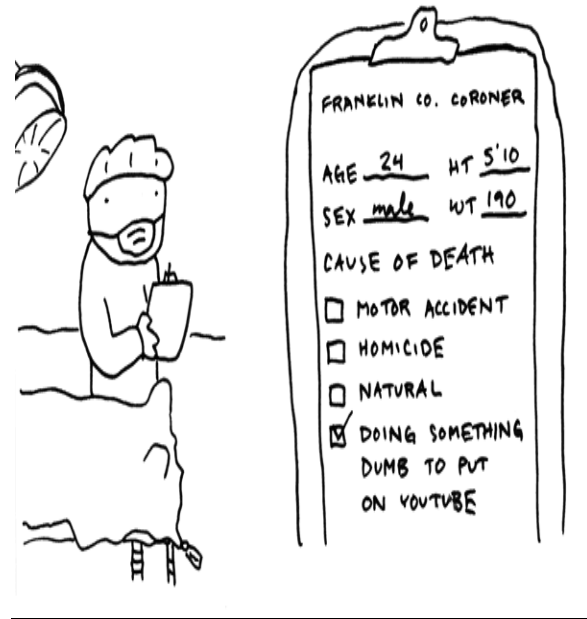 FRANKLIN CO. CORONER
AGE 24 HT 5'10
SEX male WT 190
CAUSE OF DEATH
MOTOR ACCIDENT
HOMICIDE
NATURAL
DOING SOMETHING
DUMB TO PUT
ON YOUTUBE